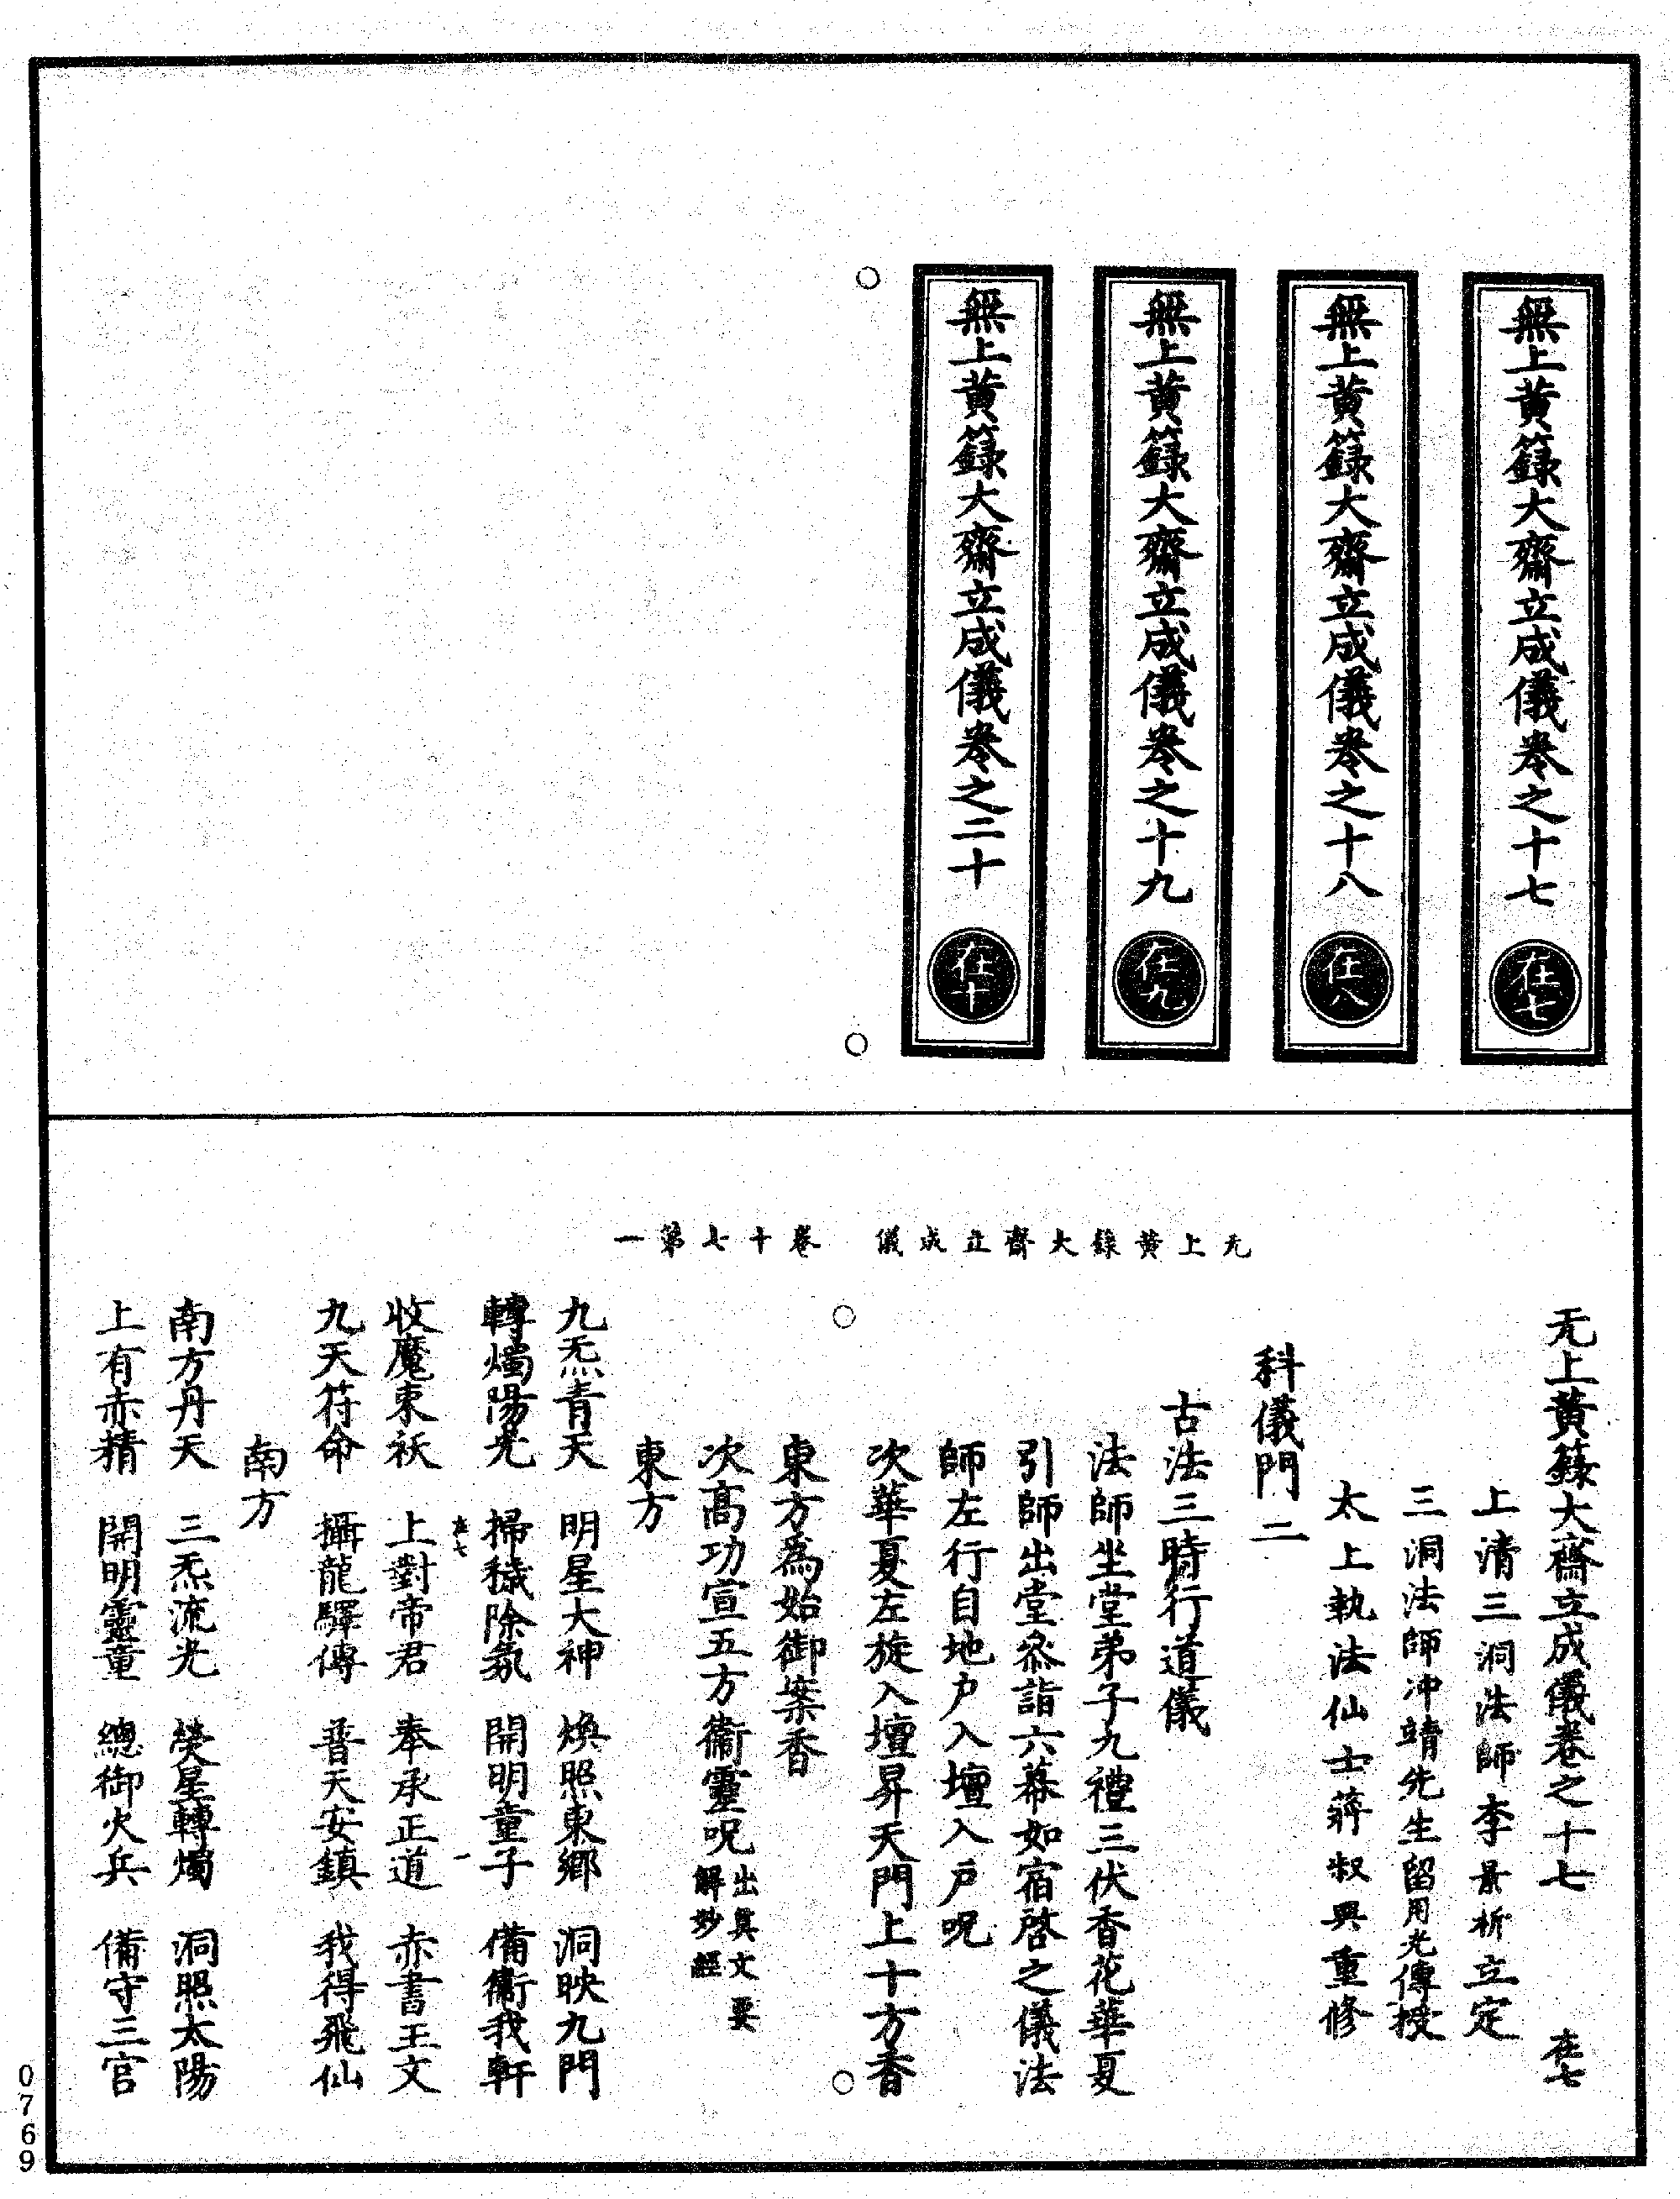 無上黄籙大齋立成儀卷之十七 在七
無上黄籙大齋立成儀卷之十八 在八
無上黄籙大齋立成儀卷之十九 在九
無上黄籙大齋立成儀卷之二十 在十
无上黄籙大齋立成儀 卷十七第一
无上黄籙大齋立成儀卷之十七 在七
上清三洞法師李景祈立定
三洞法師冲靖先生留用光傳授
太上執法仙士蔣叔輿重修
科儀門二
古法三時行道儀
法師坐堂弟子九禮三伏香花華夏
引師出堂叅詣六幕如宿啓之儀法
師左行自地户入壇入戸呪
次華夏左旋入壇昇天門上十方香
東方為始御案香
次高功宣五方衞靈呪出真文要解妙經
東方
九炁青天 明星大神 煥照東鄉 洞映九門
轉燭陽光 掃穢除氛 開明童子 備衞我軒
在七 一
收魔束祅 上對帝君 奉承正道 赤書玉文
九天符命 攝龍驛傳 普天安鎮 我得飛仙
南方
南方丹天 三炁流光 熒星轉燭 洞照太陽
上有赤精 開明靈童 總御火兵 備守三官
0769